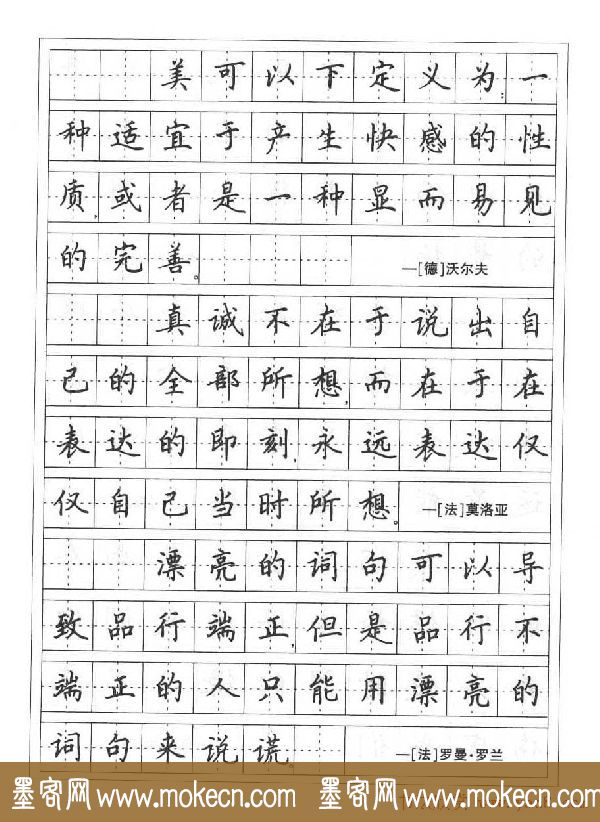 美可以下定义为:一
种适宜于产生快感的性
质,或者是一种显而易见
的完善。
—[德]沃尔夫
真诚不在于说出自
己的全部所想,而在于在
表达的即刻,永远表达仅
仅自己当时所想。
—[法]莫洛亚
漂亮的词句可以导
致品行端正,但是品行不
端正的人只能用漂亮的
词句来说谎。
—[法]罗曼·罗兰
墨客网 www.mokecn.com 墨客网 www.mokecn.com